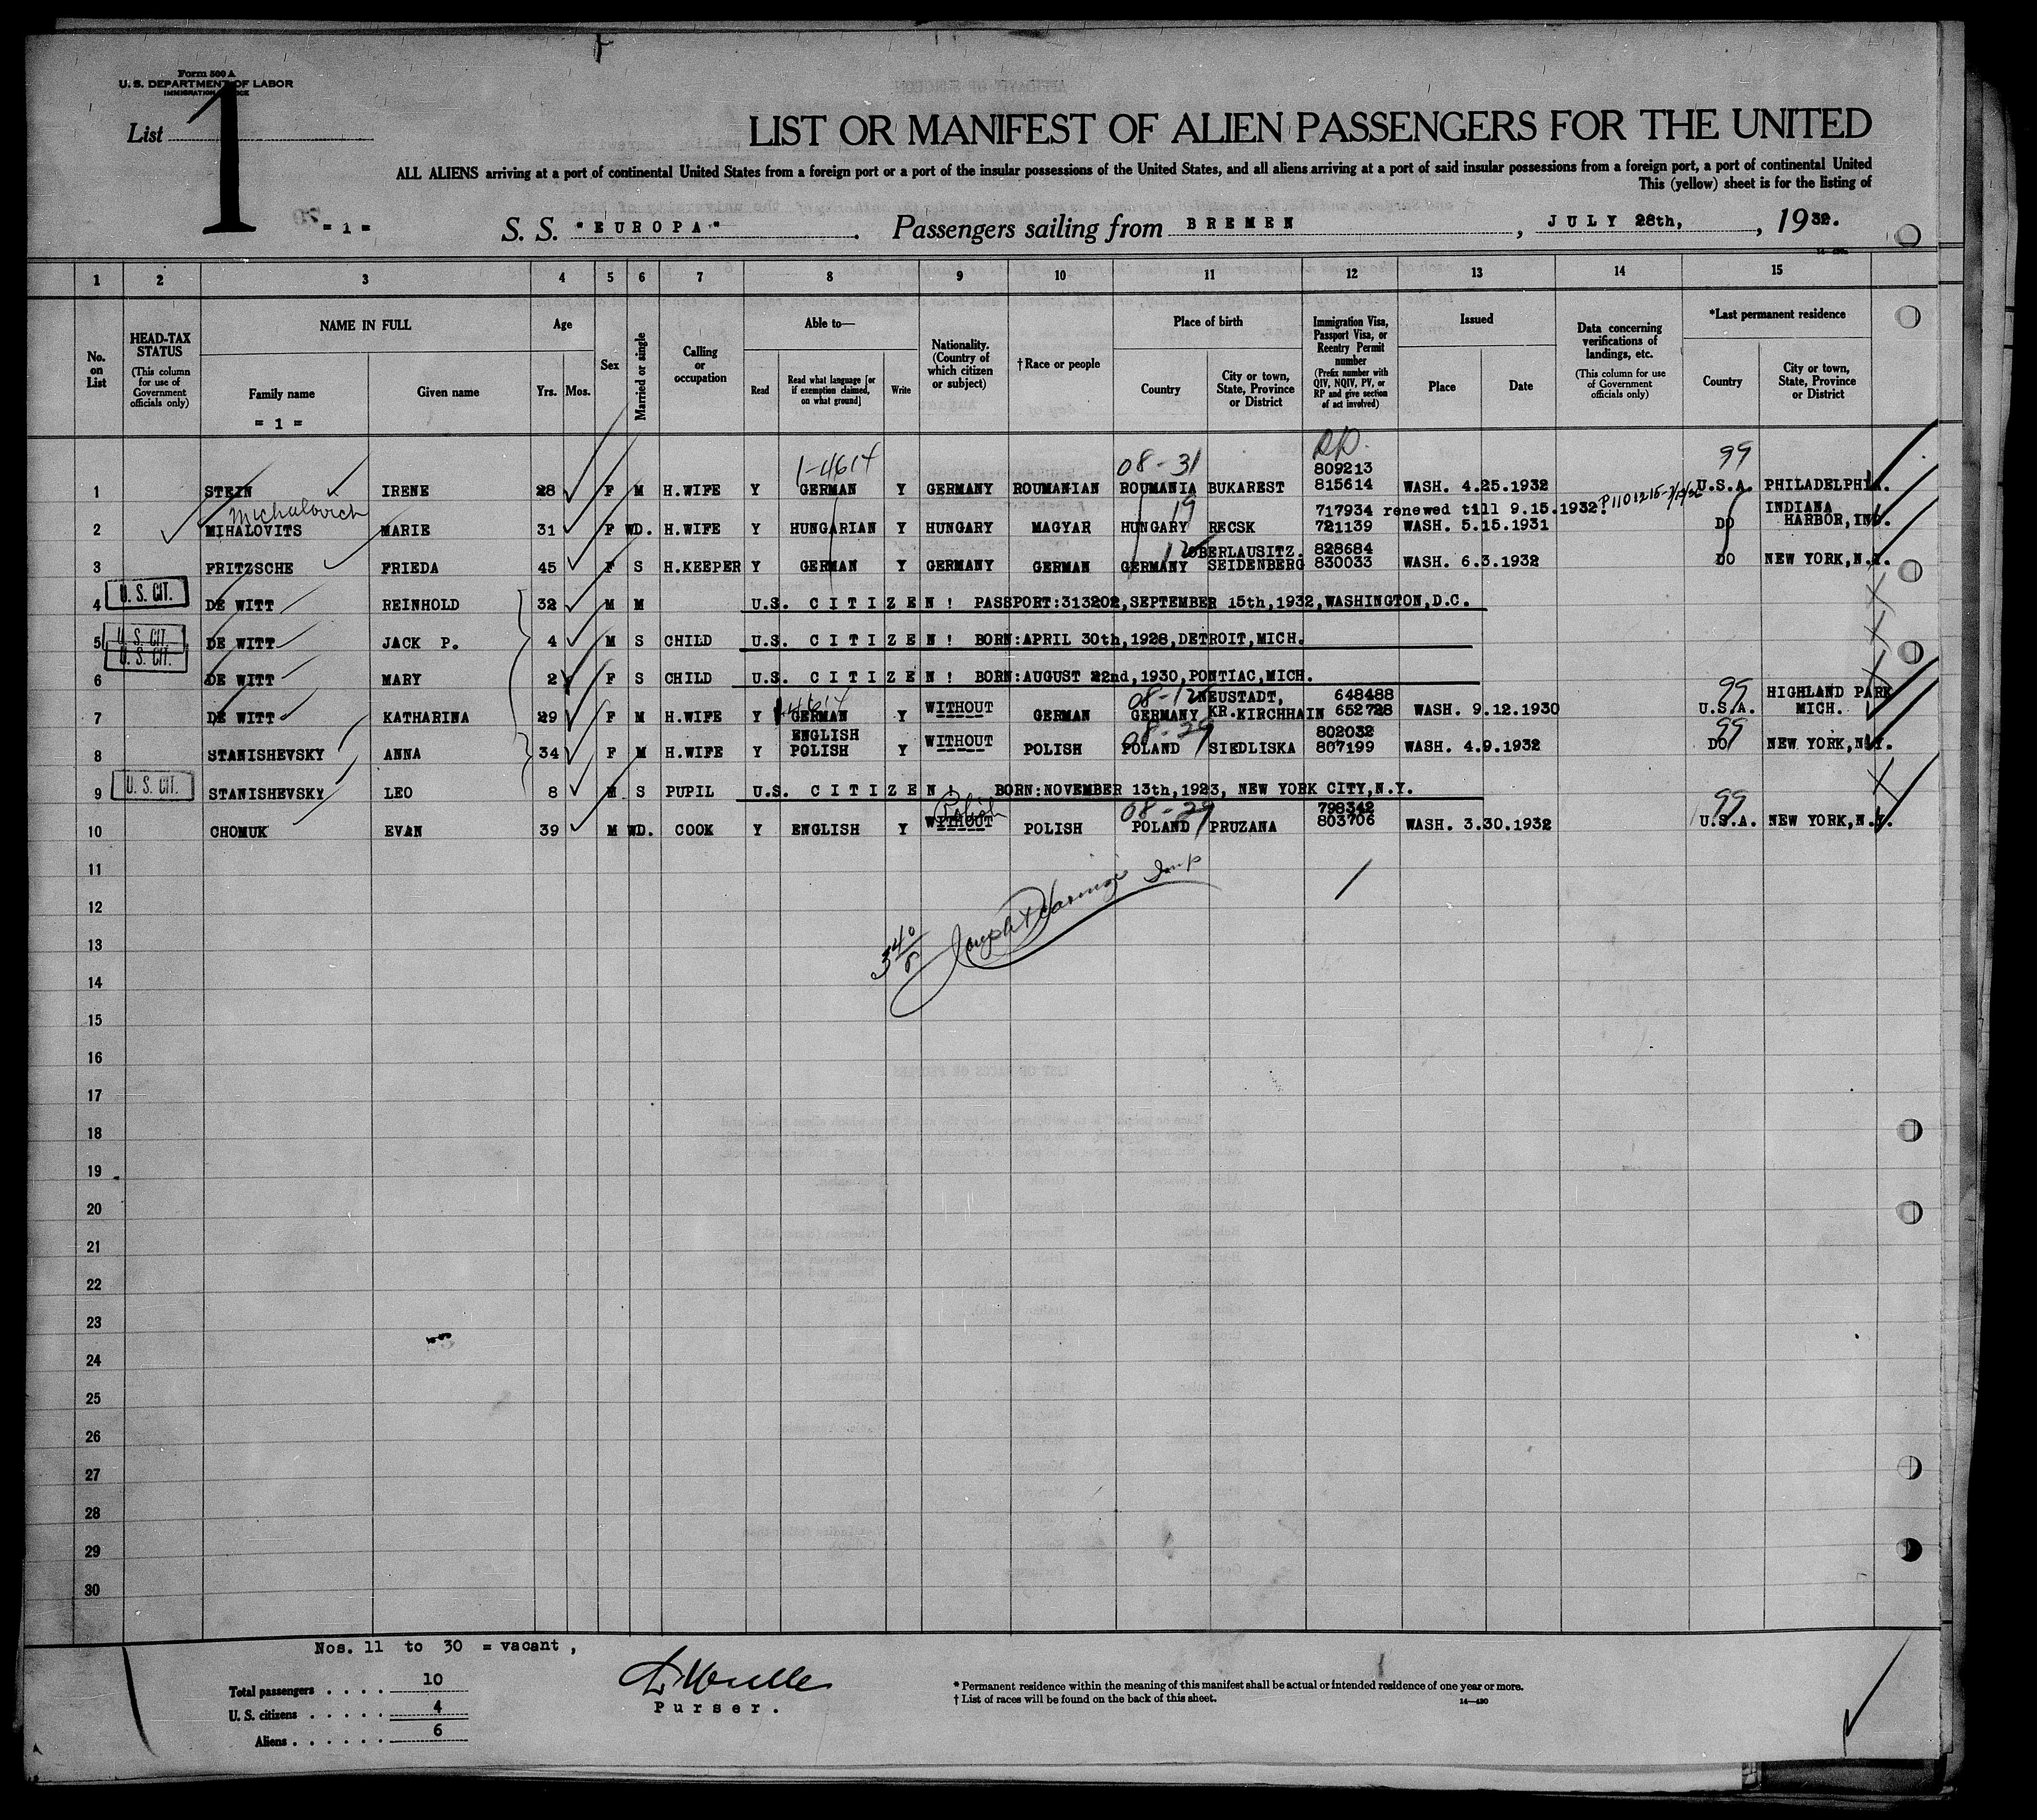 Form 500 A
U. S. DEPARTMENT OF LABOR
List 1
LIST OR MANIFEST OF ALIEN PASSENGERS FOR THE UNITED
ALL ALIENS arriving at a port of continental United States from a foreign port or a port of the insular possessions of the United States, and all aliens arriving at a port of said insular possessions from a foreign port, a port of continental United
This (yellow) sheet is for the listing of
= 1 = S. S. "EUROPA". Passengers sailing from BREMEN, JULY 28th, , 1932.
1 2 3 4 5 6 7 8 9 10 11 12 13 14 15
No. on List
HEAD-TAX STATUS
(This column for use of Government officials only)
NAME IN FULL
Family name
Given name
= 1 =
Age
Yrs. Mos.
Sex
Married or single
Calling or occupation
Able to—
Read
Read what language [or if exemption claimed, on what ground]
Write
Nationality. (Country of which citizen or subject)
†Race or people
Place of birth
Country
City or town, State, Province or District
Immigration Visa, Passport Visa, or Reentry Permit number
(Prefix number with QIV, NQIV, PV, or RP and give section of act involved)
Issued
Place
Date
Data concerning verifications of landings, etc.
(This column for use of Government officials only)
*Last permanent residence
Country
City or town, State, Province or District
1-4614 08-31 99
809213
1 STEIN IRENE 28 F M H.WIFE Y GERMAN Y GERMANY ROUMANIAN ROUMANIA BUKAREST 815614 WASH. 4.25.1932 U.S.A. PHILADELPHIA.
Michalovich 19 717934 renewed till 9.15.1932. INDIANA
2 MIHALOVITS MARIE 31 F WD. H.WIFE Y HUNGARIAN Y HUNGARY MAGYAR HUNGARY RECSK 721139 WASH. 5.15.1931 DO HARBOR, IND.
12 OBERLAUSITZ. 828684
3 FRITZSCHE FRIEDA 45 F S H.KEEPER Y GERMAN Y GERMANY GERMAN GERMANY SEIDENBERG 830033 WASH. 6.3.1932 DO NEW YORK, N.Y.
U. S. CIT.
4 DE WITT REINHOLD 32 M M U.S. CITIZEN! PASSPORT:313202, SEPTEMBER 15th, 1932, WASHINGTON, D.C.
U. S. CIT.
5 DE WITT JACK P. 4 M S CHILD U.S. CITIZEN! BORN:APRIL 30th, 1928, DETROIT, MICH.
U. S. CIT.
6 DE WITT MARY 2 F S CHILD U.S. CITIZEN! BORN:AUGUST 22nd, 1930, PONTIAC, MICH.
1-4614 08-12 NEUSTADT, 648488 99 HIGHLAND PARK
7 DE WITT KATHARINA 29 F M H.WIFE Y GERMAN Y WITHOUT GERMAN GERMANY KR.KIRCHHAIN 652728 WASH. 9.12.1930 U.S.A. MICH.
ENGLISH 08-29 802032 99
8 STANISHEVSKY ANNA 34 F M H.WIFE Y POLISH Y WITHOUT POLISH POLAND SIEDLISKA 807199 WASH. 4.9.1932 DO NEW YORK, N.Y.
U. S. CIT.
9 STANISHEVSKY LEO 8 M S PUPIL U.S. CITIZEN! BORN:NOVEMBER 13th, 1923, NEW YORK CITY, N.Y.
Polish 08-29 798342 99
10 CHOMUK EVAN 39 M WD. COOK Y ENGLISH Y WITHOUT POLISH POLAND PRUZANA 803706 WASH. 3.30.1932 U.S.A. NEW YORK, N.Y.
11
12
13
14
15
16
17
18
19
20
21
22
23
24
25
26
27
28
29
30
Nos. 11 to 30 = vacant,
Total passengers . . . . 10
U. S. citizens . . . . . 4
Aliens . . . . . . 6
Purser.
* Permanent residence within the meaning of this manifest shall be actual or intended residence of one year or more.
† List of races will be found on the back of this sheet.
14—430